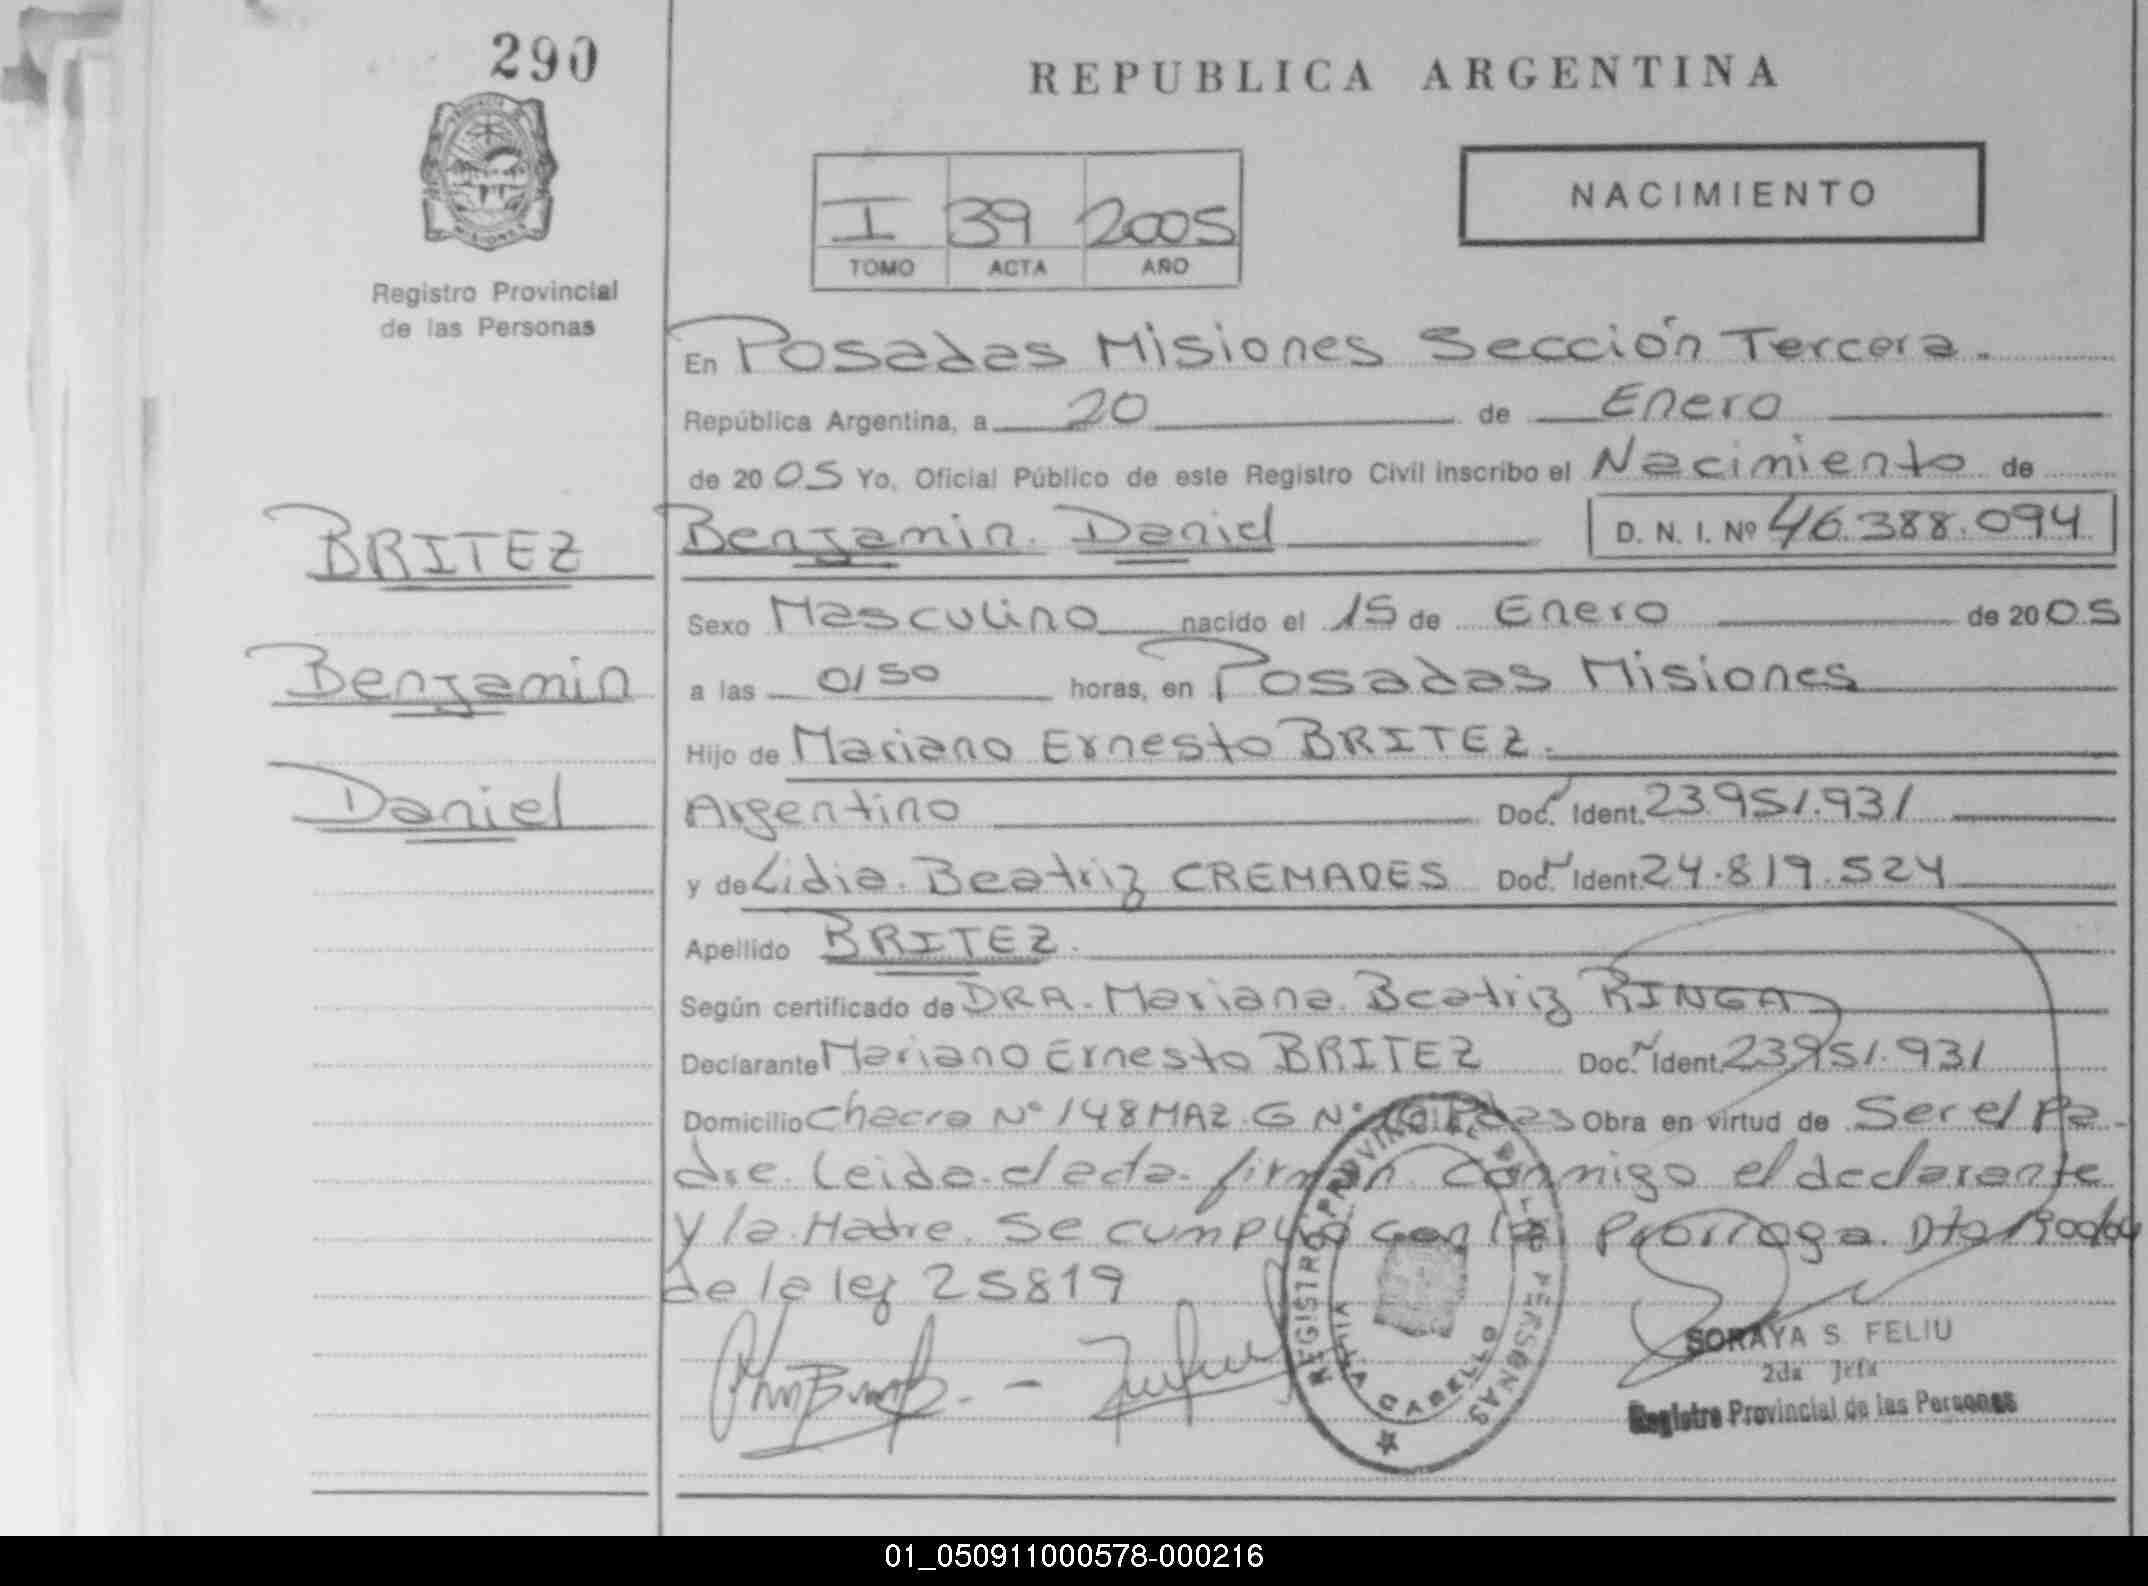 290
REPUBLICA ARGENTINA
NACIMIENTO
I 39 2005
TOMO ACTA AÑO
Registro Provincial
de las Personas
En Posadas Misiones Sección Tercera.
República Argentina, a 20 de Enero
de 2005 Yo, Oficial Público de este Registro Civil inscribo el Nacimiento de
BRITEZ Benjamin Daniel D. N. I. Nº 46.388.094
Sexo Masculino nacido el 15 de Enero de 2005
Benjamin a las 0150 horas, en Posadas Misiones
Hijo de Mariano Ernesto BRITEZ.
Daniel Argentino Doc. Ident. 23.951.931
y de Lidia Beatriz CREMADES Doc. Ident. 24.819.524
Apellido BRITEZ.
Según certificado de DRA. Mariana Beatriz RINGA
Declarante Mariano Ernesto BRITEZ Doc. Ident. 23.951.931
Domicilio Chacra Nº 148 MAZ. G Nº Pdas Obra en virtud de Ser el Pa-
dre. Leida el acta firman conmigo el declarante
y la Madre. Se cumplio con la Prorroga Dto
de la ley 25819
REGISTRO PROVINCIAL DE LAS PERSONAS
VILLA CABELLO
SORAYA S. FELIU
2da Jefa
Registro Provincial de las Personas
01_050911000578-000216